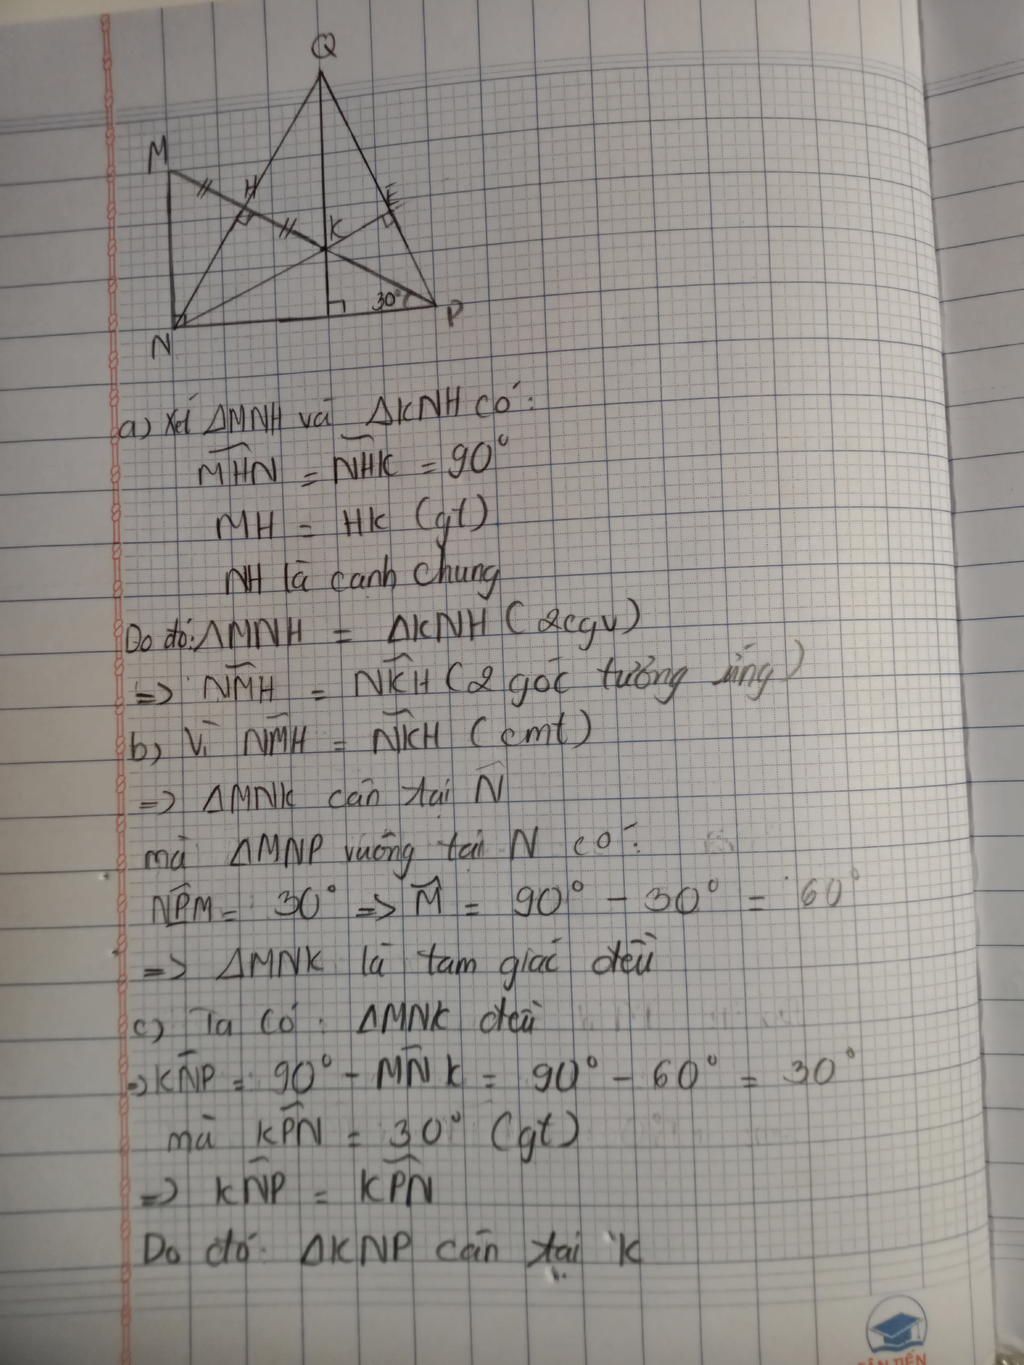 Q
M
H
E
K
30°
P
N
a) Xét ΔMNH và ΔKNH có:
MHN = NHK = 90°
MH = HK (gt)
NH là cạnh chung
Do đó: ΔMNH = ΔKNH (2cgv)
=> NMH = NKH (2 góc tương ứng)
b) Vì NMH = NKH (cmt)
=> ΔMNK cân tại N
mà ΔMNP vuông tại N có:
NPM = 30° => M = 90° - 30° = 60°
=> ΔMNK là tam giác đều
c) Ta có: ΔMNK đều
=> KNP = 90° - MNK = 90° - 60° = 30°
mà KPN = 30° (gt)
=> KNP = KPN
Do đó: ΔKNP cân tại K